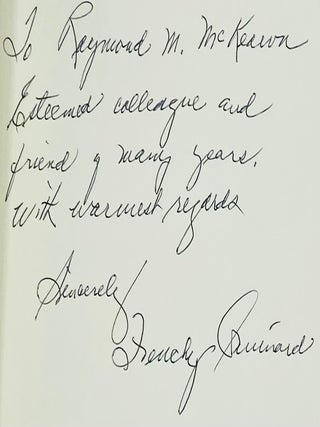 To Raymond M. McKeown
Esteemed colleague and
friend of many years.
With warmest regards
Sincerely
Frenchy